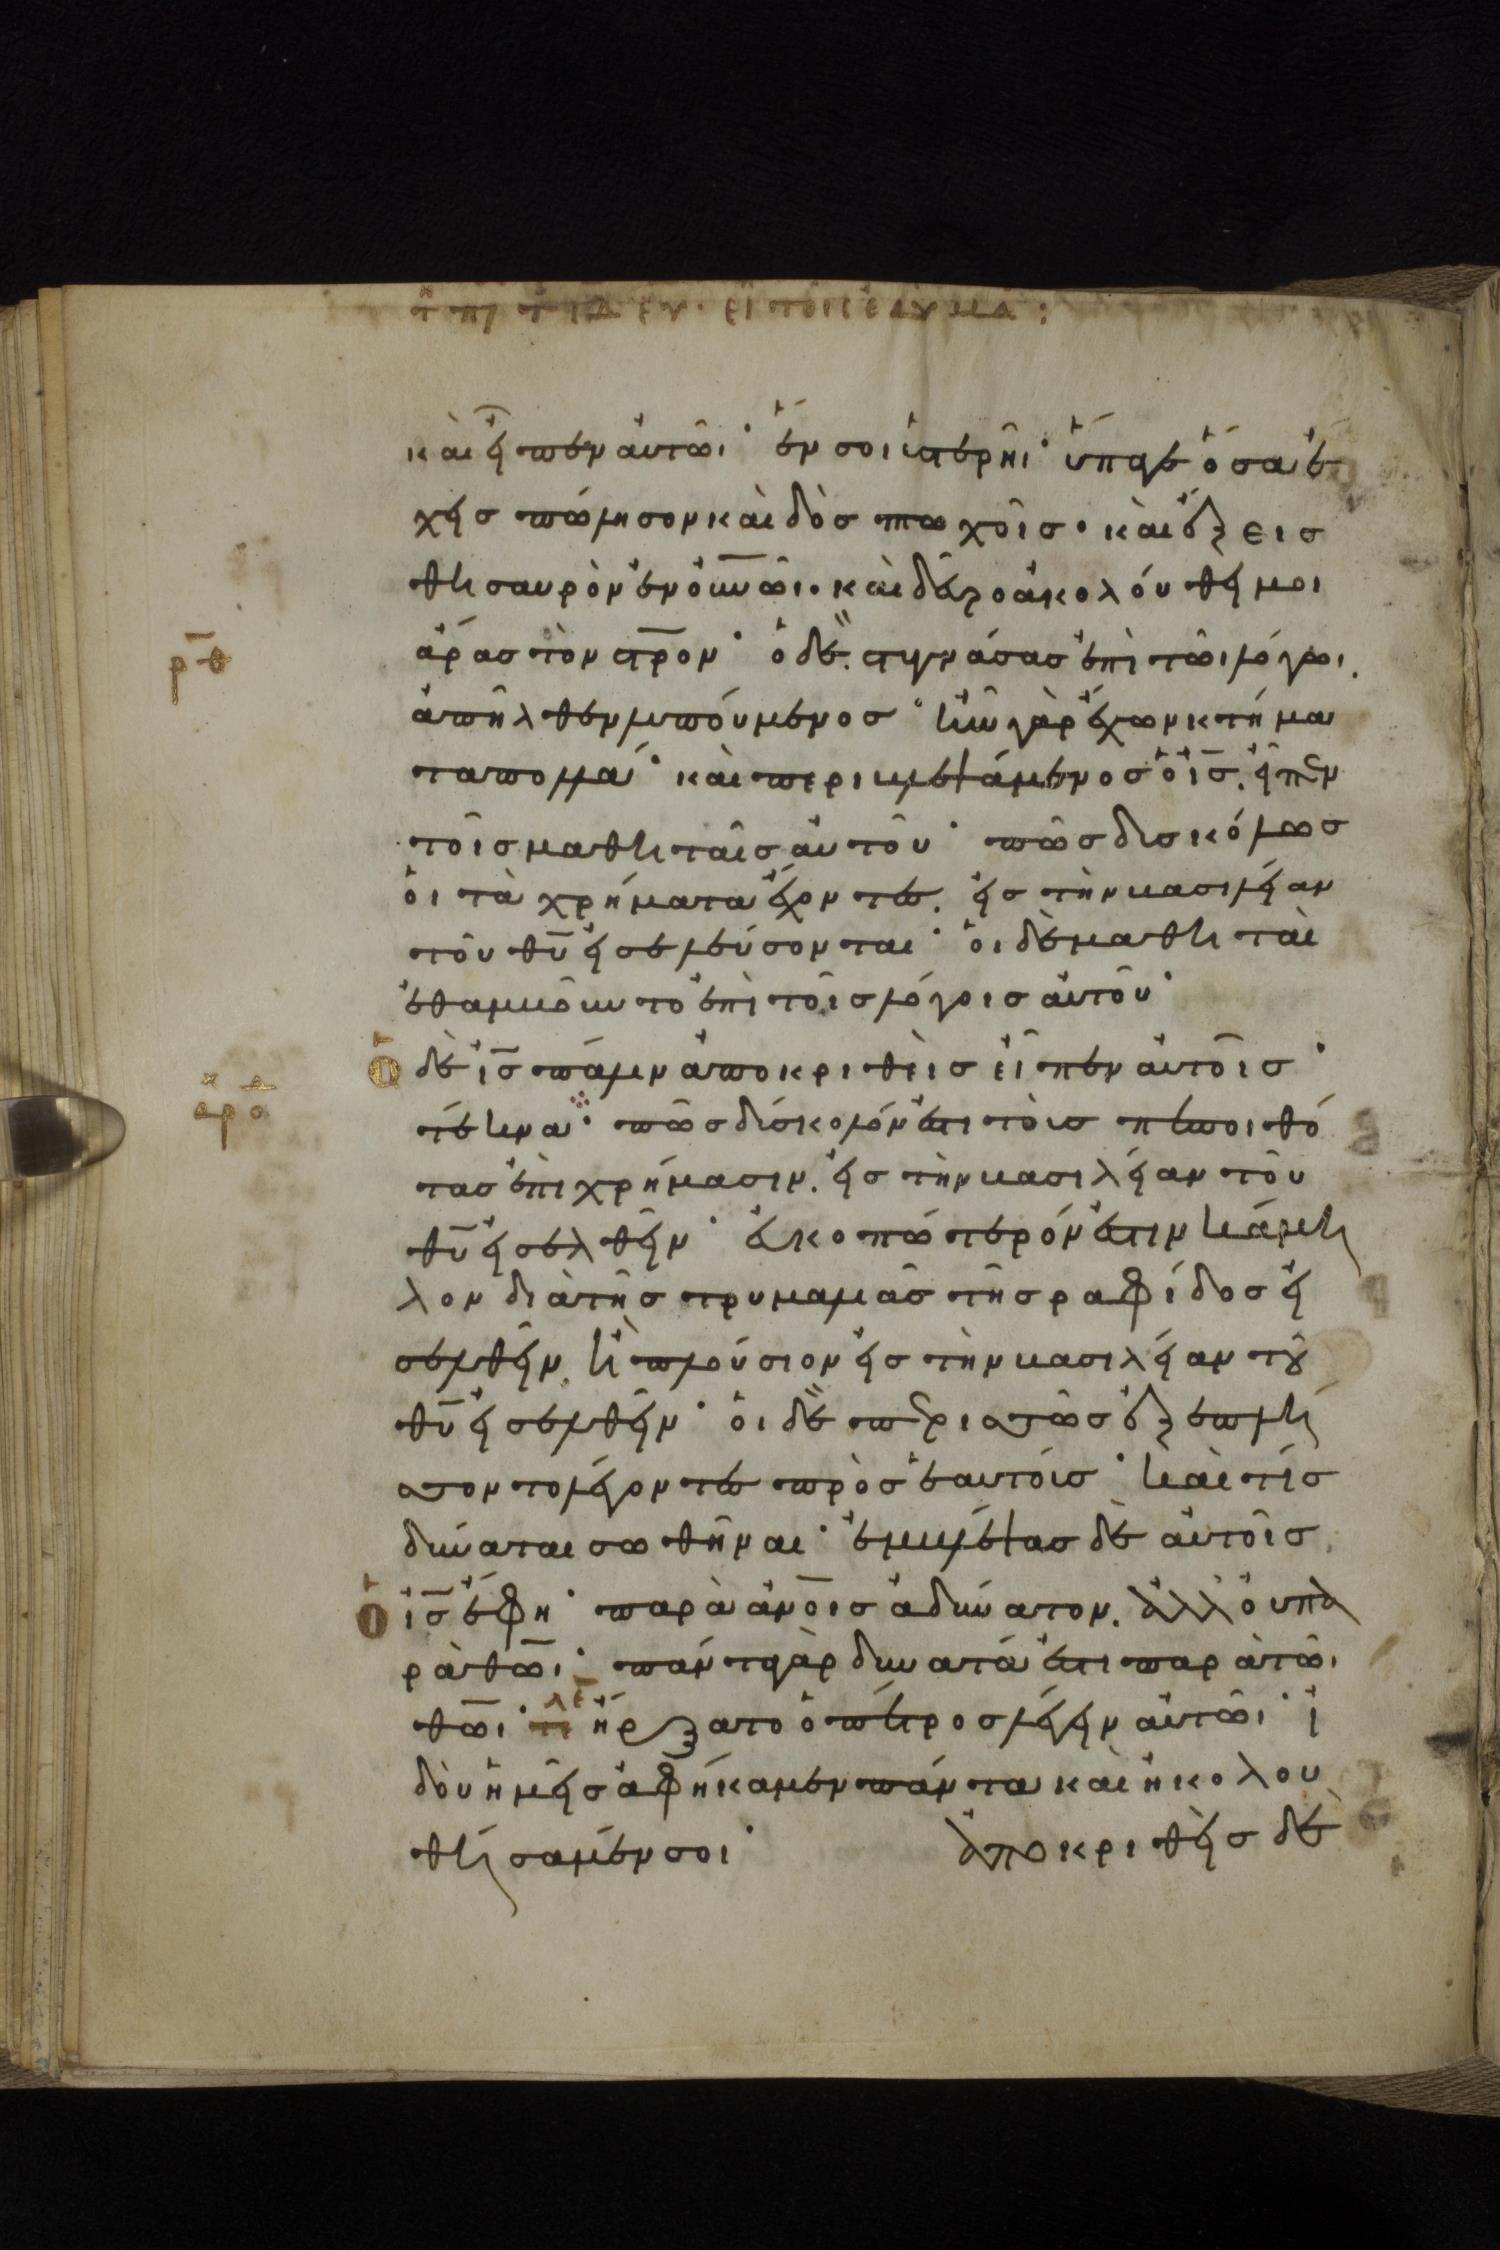 καὶ εἶπεν αὐτῶι· ἕν σοι ὑστερεῖ· ὕπαγε ὅσα ἔ
χεις πώλησον καὶ δὸς πτωχοῖς· καὶ ἕξεις
θησαυρὸν ἐν οὐνῶι· καὶ δεῦρο ἀκολούθει μοι
ἄρας τὸν στρον· ὁ δὲ στυγνάσας ἐπὶ τῶι λόγωι,
ἀπῆλθεν λυπούμενος· ἦν γὰρ ἔχων κτήμα
τα πολλά· καὶ περιβλεψάμενος ὁ ις, εἶπεν
τοῖς μαθηταῖς αὐτοῦ· πῶς δυσκόλως
οἱ τὰ χρήματα ἔχοντες, εἰς τὴν βασιλείαν
τοῦ θυ εἰσελεύσονται· οἱ δὲ μαθηταὶ
ἐθαμβοῦντο ἐπὶ τοῖς λόγοις αὐτοῦ·
ρθ
Ὁ δὲ ις πάλιν ἀποκριθεὶς εἶπεν αὐτοῖς·
τέκνα· πῶς δύσκολόν ἐστι τοὺς πεποιθό
τας ἐπὶ χρήμασιν, εἰς τὴν βασιλείαν τοῦ
θυ εἰσελθεῖν· εὐκοπώτερόν ἐστιν κάμη
λον διὰ τῆς τρυμαλιᾶς τῆς ραφίδος εἰ
σελθεῖν, ἢ πλούσιον εἰς τὴν βασιλείαν τοῦ
θυ εἰσελθεῖν· οἱ δὲ περισσῶς ἐξεπλή
σσοντο λέγοντες πρὸς ἑαυτούς· καὶ τίς
δύναται σωθῆναι· ἐμβλέψας δὲ αὐτοῖς
Ὁ ις ἔφη· παρὰ ανοις ἀδύνατον, ἀλλ' οὐ πα
ρὰ θωι· πάντα γὰρ δυνατά ἐστι παρὰ τῶι
θωι· ἤρξατο ὁ πέτρος λέγειν αὐτῶι· ἰ
δοὺ ἡμεῖς ἀφήκαμεν πάντα καὶ ἠκολου
θήσαμέν σοι· ἀποκριθεὶς δὲ